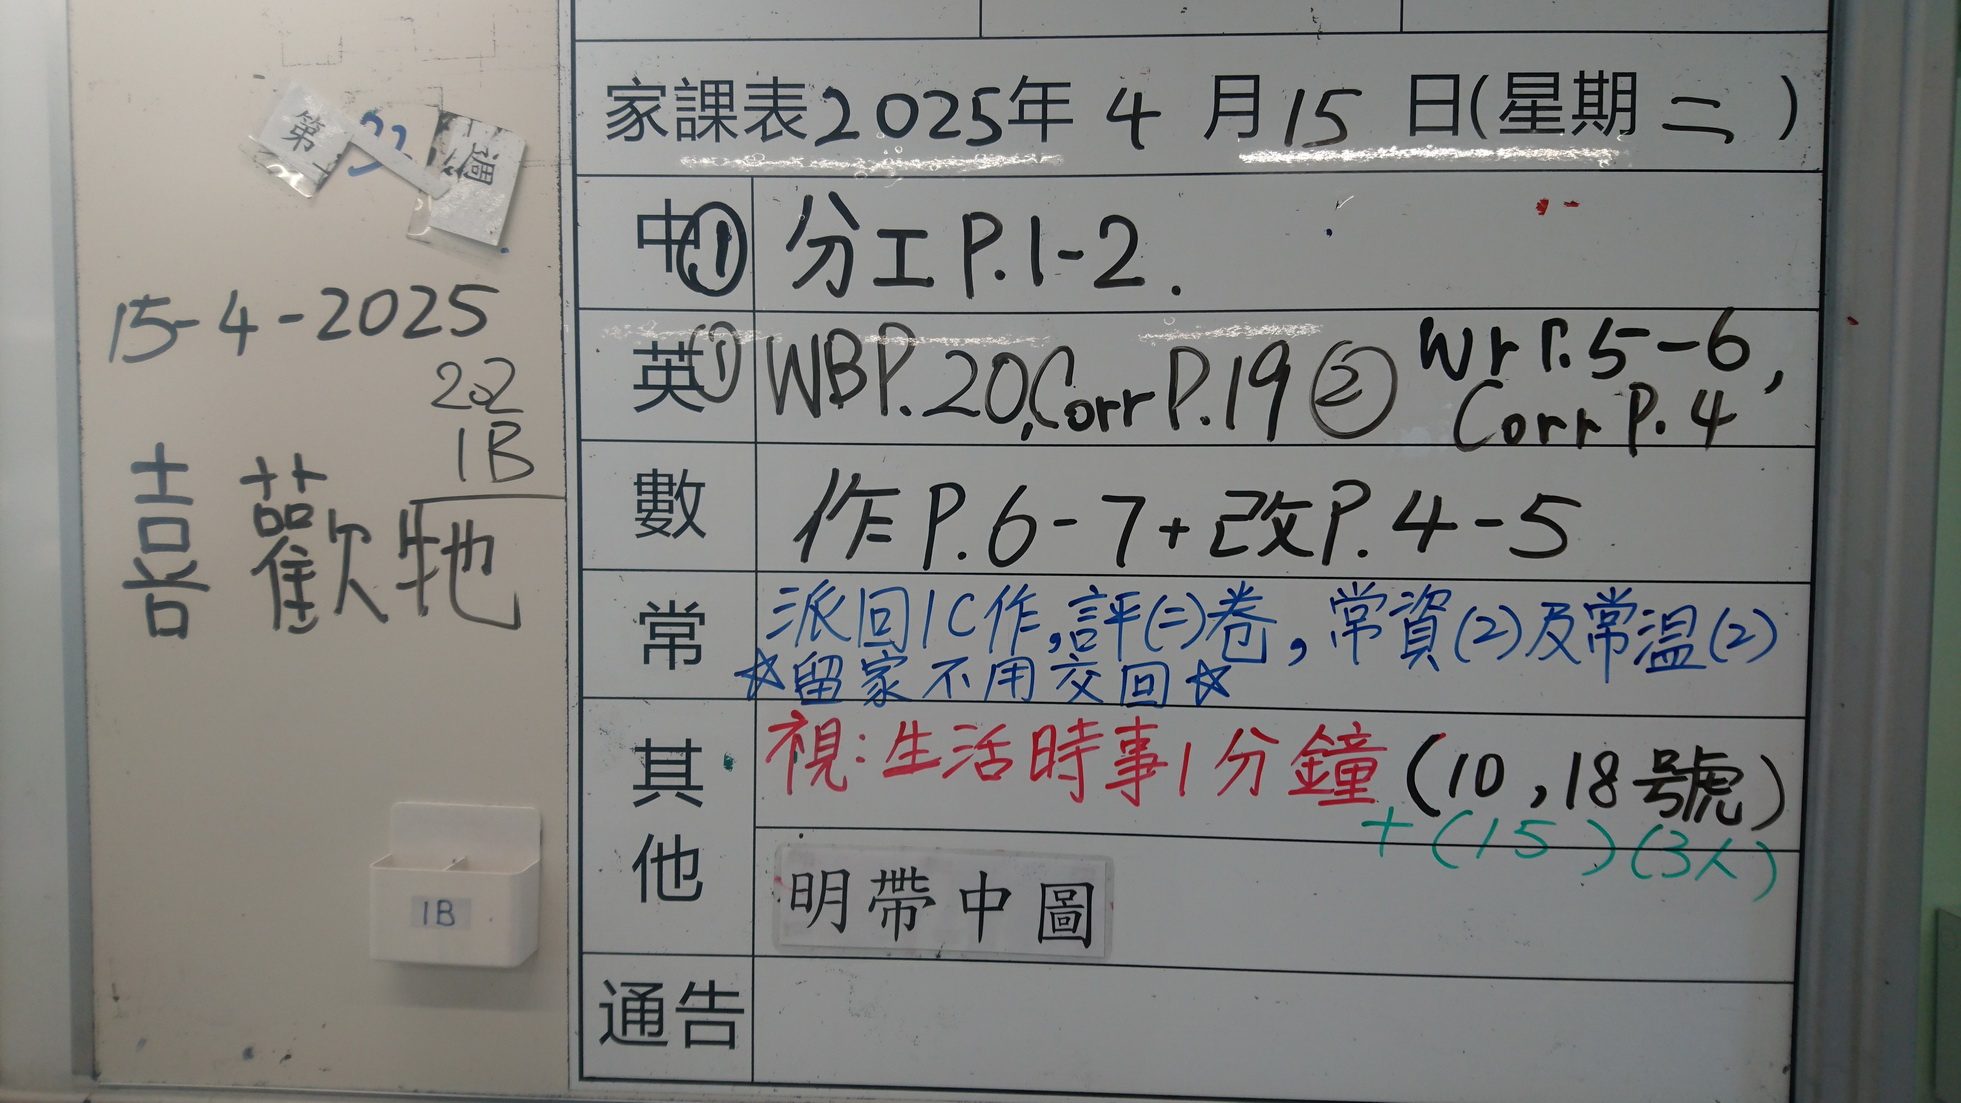 第
15-4-2025
22
1B
喜歡牠
1B
家課表2025年4月15日(星期二)
中① 分工P.1-2.
英① WBP.20,Corr P.19 ② Wr P.5-6,
Corr P.4
數 作P.6-7+改P.4-5
常 派回1C作,評(二)卷,常資(2)及常温(2)
☆留家不用交回☆
其他 視:生活時事1分鐘(10,18號)
+(15)(3人)
明帶中圖
通告